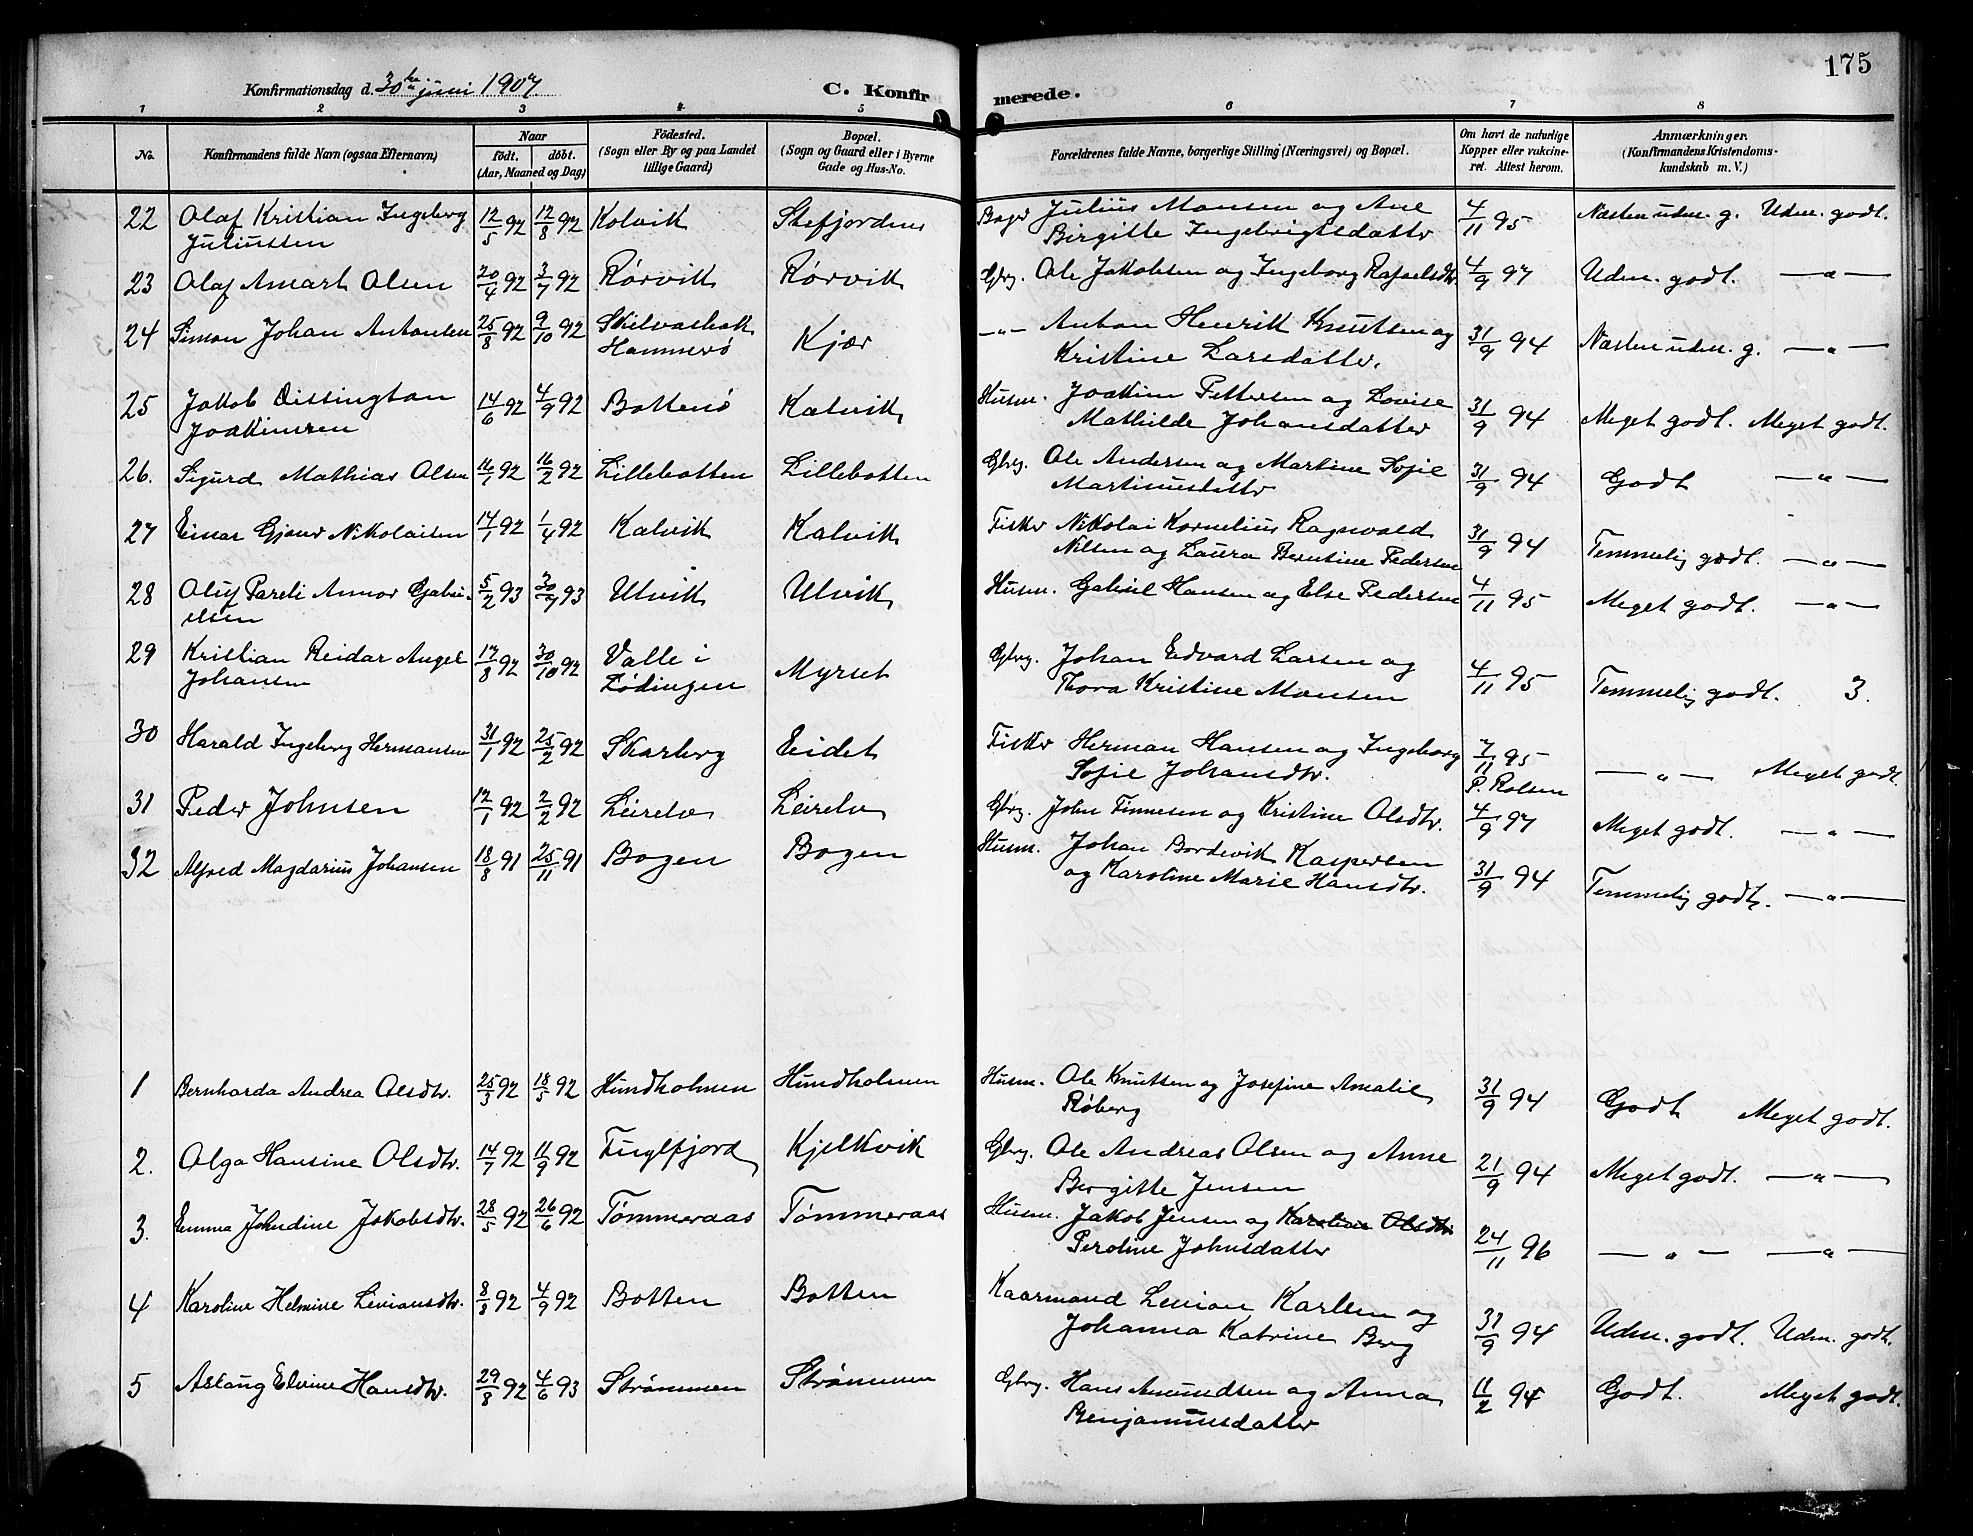 175
Konfirmationsdag d. 30te juni 1907.
C. Konfirmerede.
1 2 3 4 5 6 7 8
No.
Konfirmandens fulde Navn (ogsaa Efternavn)
Naar
födt. döbt.
(Aar, Maaned og Dag)
Födested.
(Sogn eller By og paa Landet
tillige Gaard)
Bopæl.
(Sogn og Gaard eller i Byerne
Gade og Hus-No.
Forældrenes fulde Navne, borgerlige Stilling (Næringsvei) og Bopæl.
Om havt de naturlige
Kopper eller vakcine-
ret. Attest herom.
Anmærkninger.
(Konfirmandens Kristendoms-
kundskab m. V.)
22 Olaf Kristian Ingeberg 12/5 92 12/8 92 Kolvik Stefjorden Julius Monsen og Ane 4/11 95 Næsten udm. g. Udm. godt.
Juliussen Birgitte Ingebrigtsdatter
23 Olaf Amart Olsen 20/4 92 3/7 92 Rørvik Rørvik Gbrg. Ole Jakobsen og Ingeborg Rafaelsdtr 4/9 97 Udm. godt. —"—
24 Simon Johan Antonsen 25/8 92 9/10 92 Kjær —"— Anton Henrik Knutsen og 31/9 94 Næsten udm. g. —"—
Hammerø Kristine Larsdatter.
25 Jakob Dissington 14/6 92 4/9 92 Bottenø Kalvik Husm. Joakim Pettersen og Lovise 31/9 94 Meget godt. Meget godt.
Joakimsen Mathilde Johansdatter
26. Sigurd Mathias Olsen 16/1 92 16/2 92 Lillebotten Lillebotten Gbrg. Ole Andersen og Martine Sofie 31/9 94 Godt —"—
Martinusdatter
27 Einar Gjæver Nikolaisen 17/1 92 1/4 92 Kalvik Kalvik Fisker Nikolai Kornelius Ragnvald 31/9 94 Temmelig godt. —"—
Nilsen og Laura Berntine Pedersen
28 Oluf Pareli Annor Gabri- 5/2 93 30/7 93 Ulvik Ulvik Husm. Gabriel Hansen og Else Pedersen 4/11 95 Meget godt. —"—
elsen
29 Kristian Reidar Angel 17/8 92 30/10 92 Valle i Myrset Gbrg. Johan Edvard Larsen og 4/11 95 Temmelig godt. 3.
Johansen Lødingen Thora Kristine Monsen
30 Harald Ingeberg Hermansen 31/1 92 25/2 92 Skarberg Eidet Fisker Herman Hansen og Ingeborg 7/11 95 —"— Meget godt
Sofie Johansdtr. P. Rolsen
31 Peder Johnsen 12/1 92 2/2 92 Leirelv Leirelv Gbrg. John Finnesen og Kristine Olsdtr. 4/9 97 Meget godt. —"—
32 Alfred Magdarius Johansen 18/8 91 25/11 91 Bogen Bogen Husm. Johan Bordevik Kaspersen 31/9 94 Temmelig godt. —"—
og Karoline Marie Hansdtr.
1 Bernharda Andrea Olsdtr. 25/3 92 18/5 92 Hundholmen Hundholmen Husm. Ole Knutsen og Josefine Amalie 31/9 94 Godt Meget godt.
Røberg
2. Olga Hansine Olsdtr. 14/7 92 11/9 92 Fuglfjord Kjelkvik Gbrg. Ole Andreas Olsen og Anne 21/9 94 Meget godt. —"—
Bergitte Jensen
3. Emma Johndine Jakobsdtr. 28/5 92 26/6 92 Tømmeraas Tømmeraas Husm. Jakob Jensen og Karoline Olsdtr 24/11 96 —"— —"—
Peroline Johnsdatter
4 Karoline Helmine Leviansdtr. 8/8 92 4/9 92 Botten Botten Kaarmand Levian Karlsen og 31/9 94 Udm. godt. Udm. godt.
Johanna Katrine Berg
5 Aslaug Elvine Hansdtr. 29/8 92 4/6 93 Strømmen Strømmen Gbrg. Hans Amundsen og Anna 11/2 94 Godt. Meget godt.
Benjaminsdatter